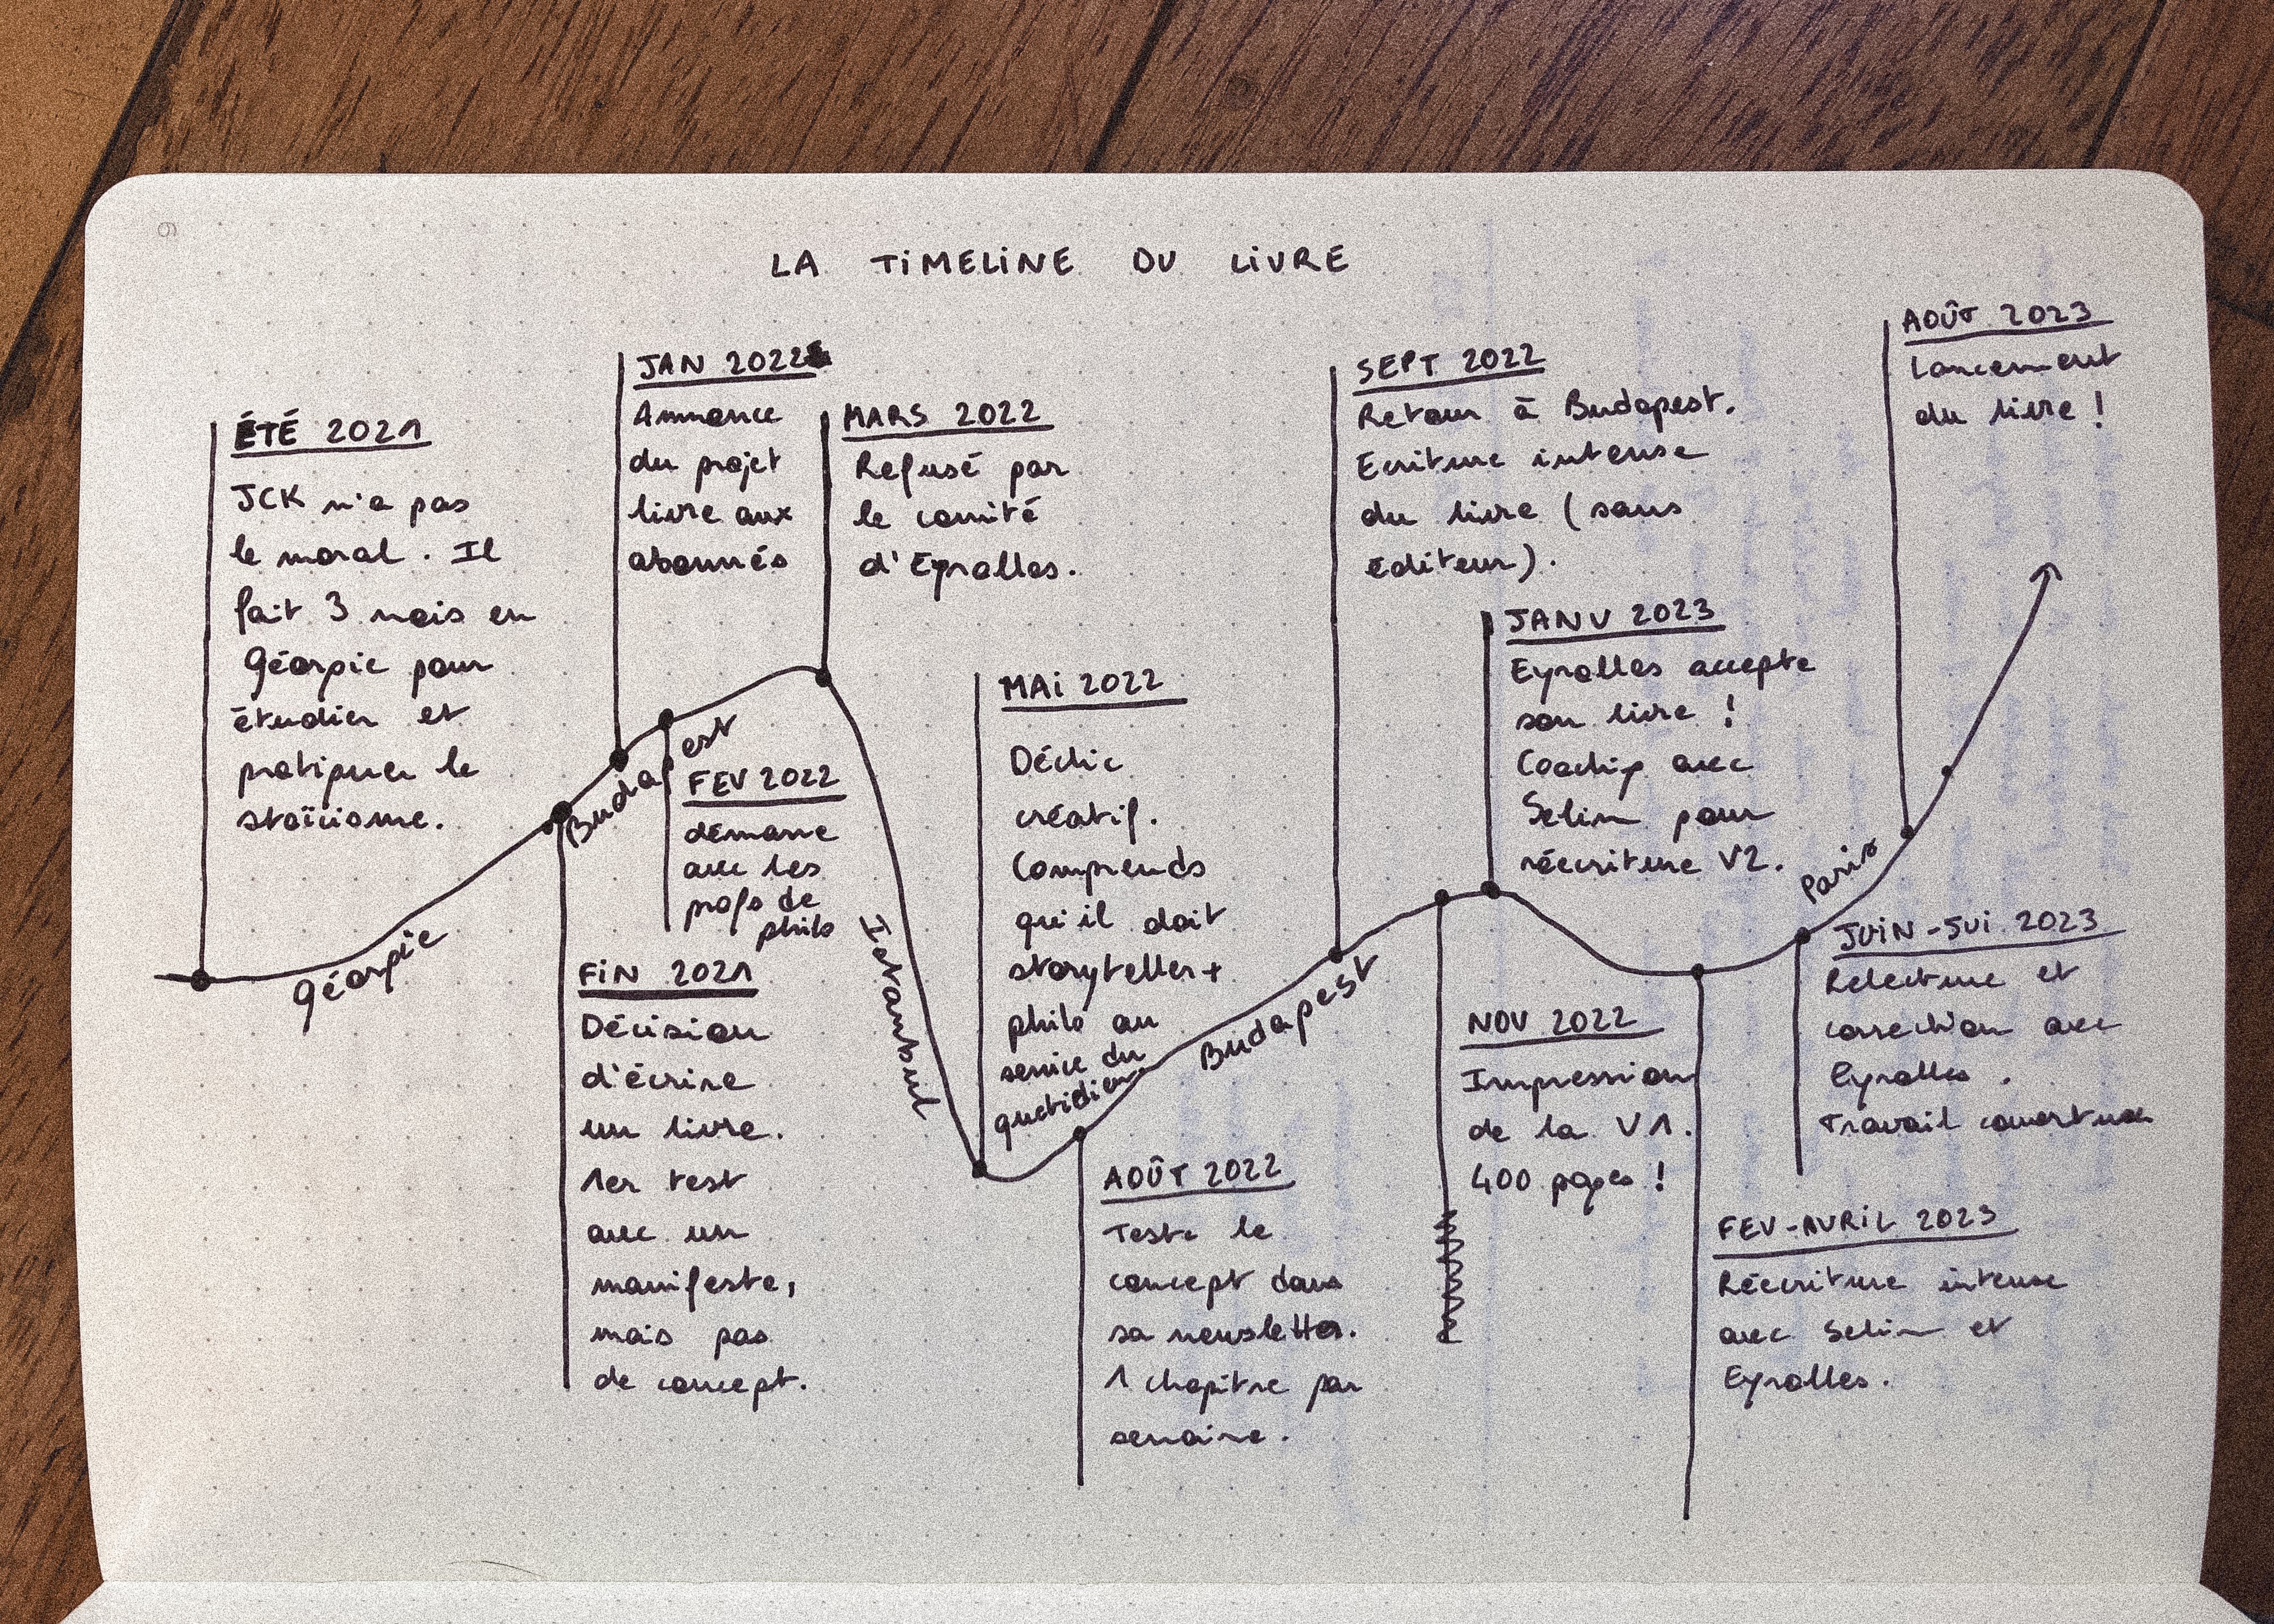 LA TiMELiNE DU LiVRE
ÉTÉ 2021
JCK n'a pas
le moral. Il
fait 3 mois en
Géorgie pour
étudier et
pratiquer le
stoïcisme.
Géorgie
FiN 2021
Décision
d'écrire
un livre.
1er test
avec un
manifeste,
mais pas
de concept.
JAN 2022
Annonce
du projet
livre aux
abonnés
Budapest
FEV 2022
démarre
avec les
profs de
philo
MARS 2022
Refusé par
le comité
d'Eyrolles.
Istanbul
MAi 2022
Déclic
créatif.
Comprends
qu'il doit
storyteller +
philo au
service du
quotidien
AOÛT 2022
Teste le
concept dans
sa newsletter.
1 chapitre par
semaine.
Budapest
SEPT 2022
Retour à Budapest.
Ecriture intense
du livre (sans
editeur).
NOV 2022
Impression
de la V1.
400 pages !
JANV 2023
Eyrolles accepte
son livre !
Coaching avec
Selim pour
réécriture V2.
FEV-AVRiL 2023
Réécriture intense
avec Selim et
Eyrolles.
Paris
JUiN-JUi 2023
Relecture et
correction avec
Eyrolles.
Travail couverture
AOÛT 2023
Lancement
du livre !